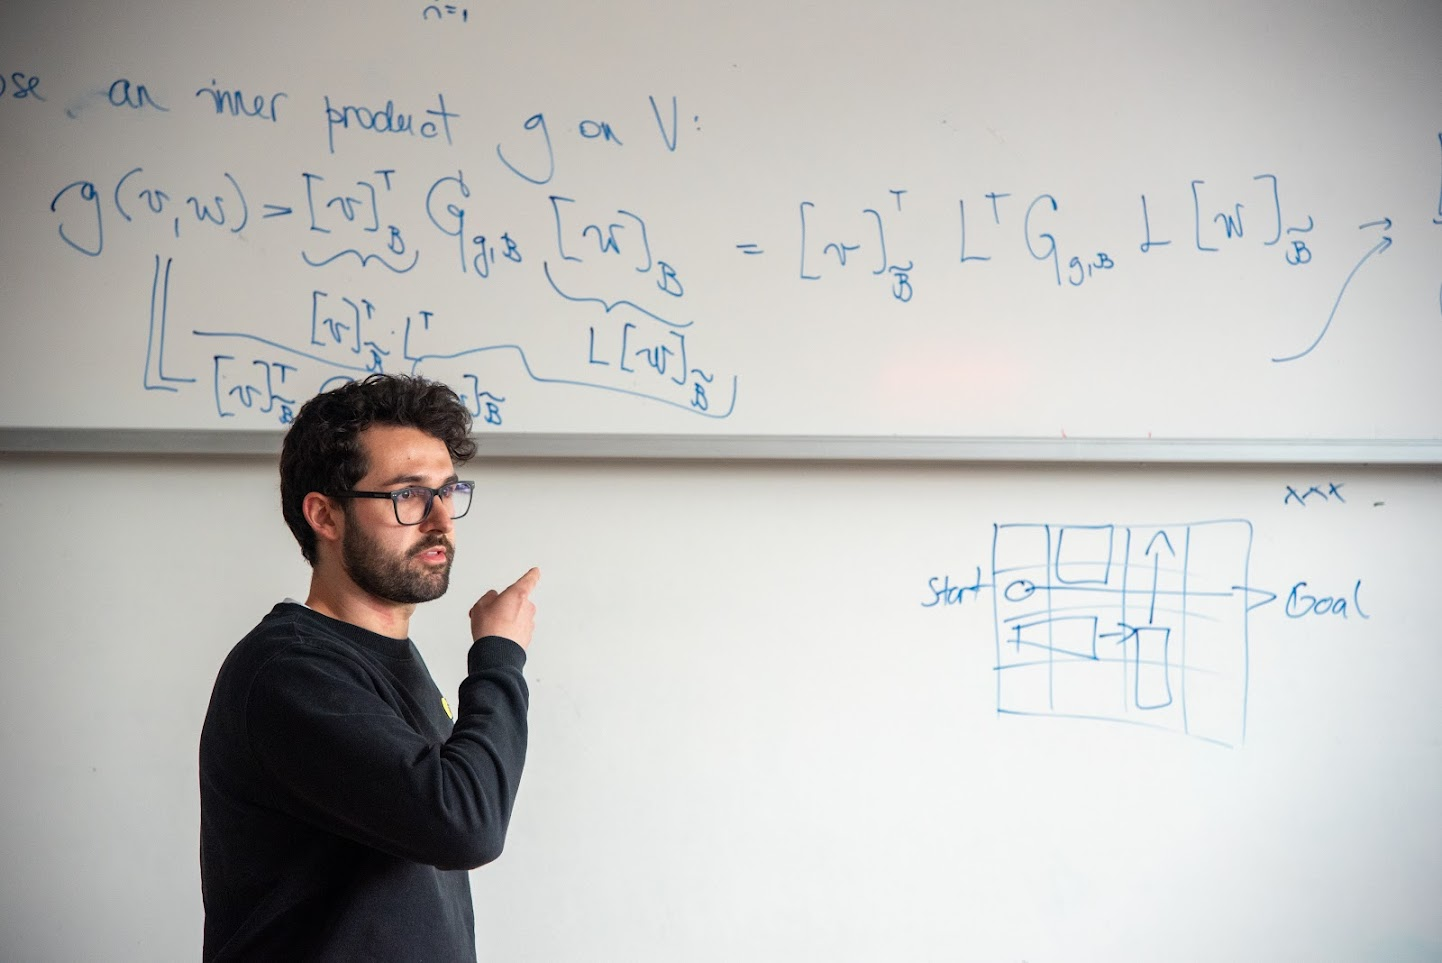 n=1
ose an inner product g on V:
g(v,w) = [v]ᵀ_B G_{g,B} [w]_B = [v]ᵀ_B̃ Lᵀ G_{g,B} L [w]_B̃ →
[v]ᵀ_B̃ · Lᵀ L [w]_B̃
[v]ᵀ_B̃ ]_B̃
xxx
Start Goal